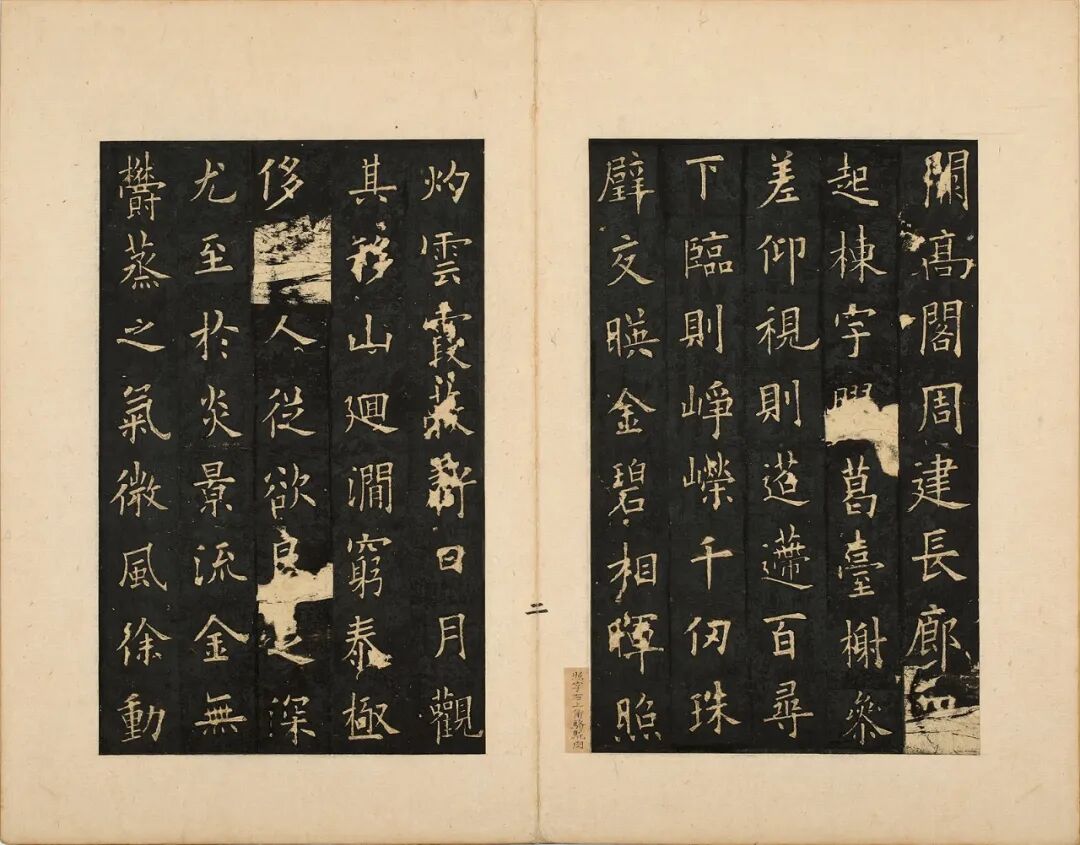 闕高閣周建長廊四
起棟宇葛臺榭參
差仰視則迢遰百尋
下臨則崢嶸千仞珠
壁交暎金碧相暉照
照字右上角
二
灼雲霞蔽虧日月觀
其移山迴澗窮泰極
侈人從欲良足深
尤至於炎景流金無
鬱蒸之氣微風徐動